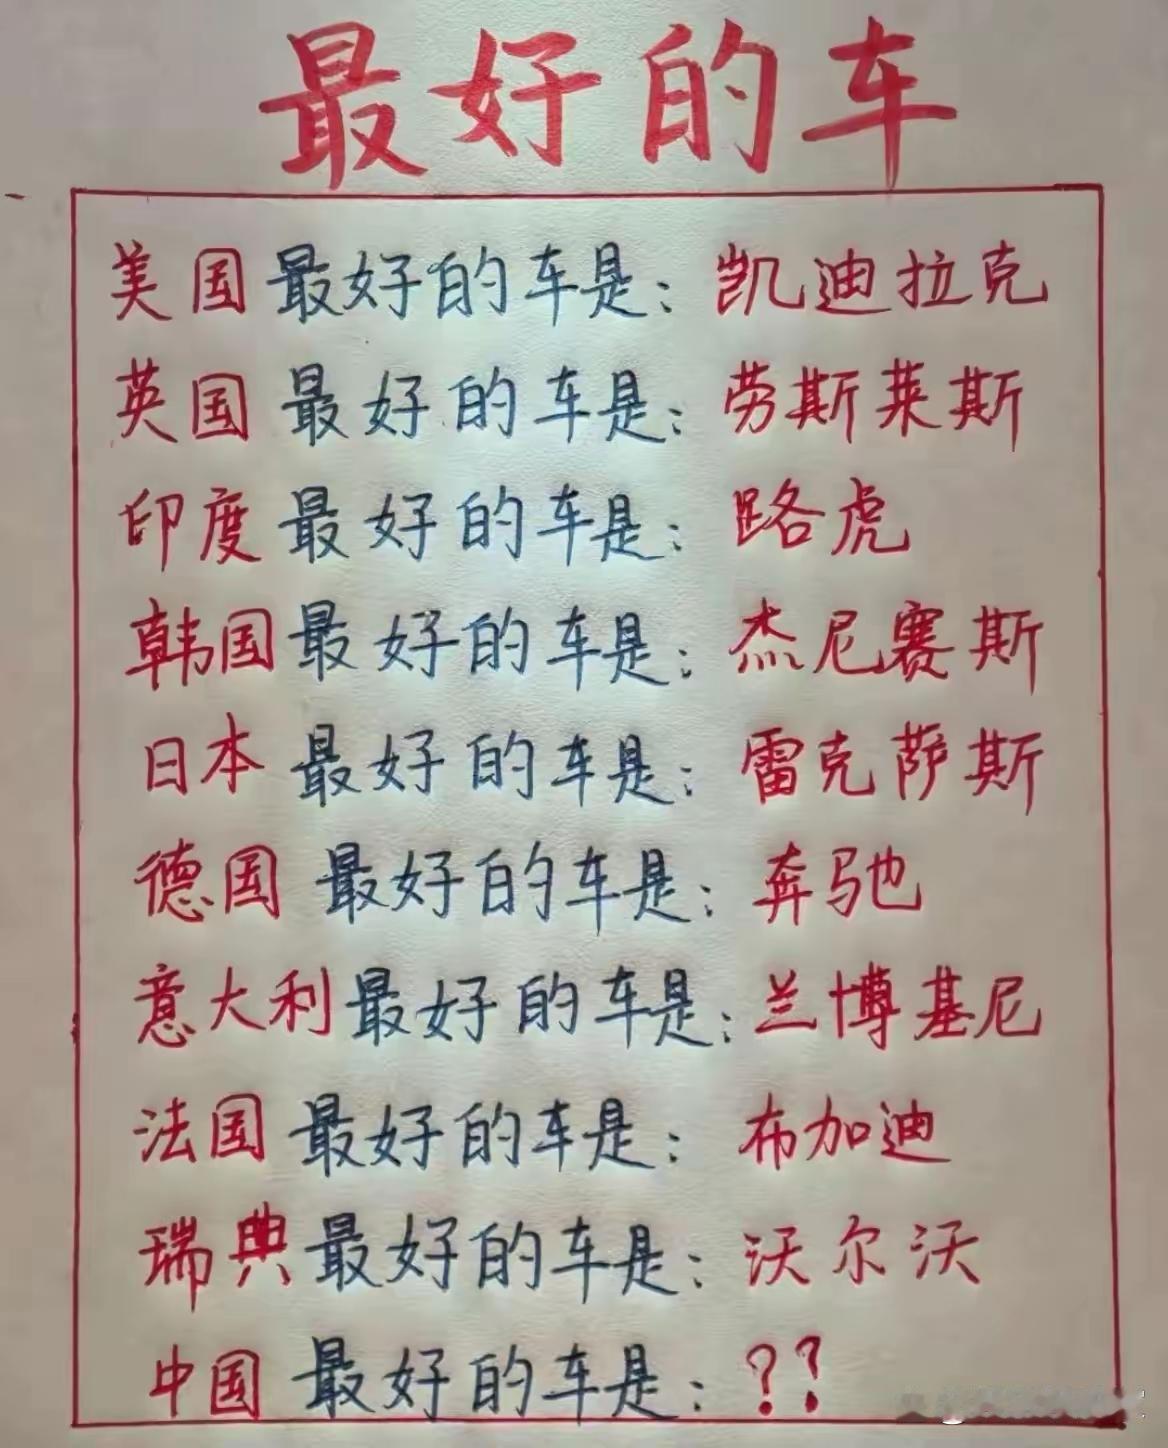 最好的车
美国最好的车是：凯迪拉克
英国最好的车是：劳斯莱斯
印度最好的车是：路虎
韩国最好的车是：杰尼赛斯
日本最好的车是：雷克萨斯
德国最好的车是：奔驰
意大利最好的车是：兰博基尼
法国最好的车是：布加迪
瑞典最好的车是：沃尔沃
中国最好的车是：??